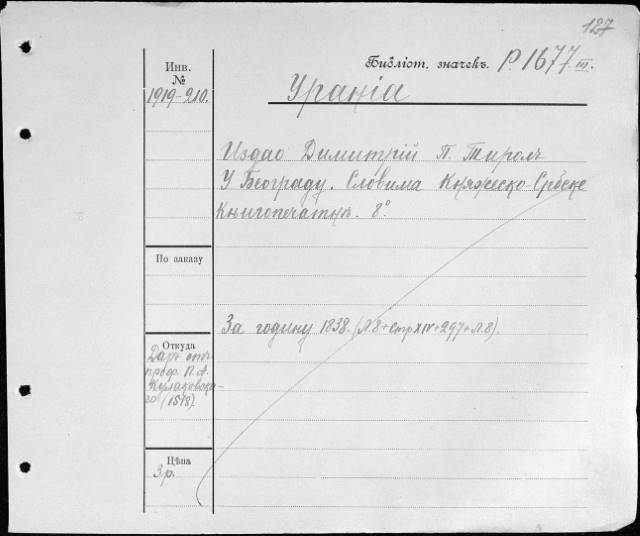 127
Библіот. значекъ. Р. 1677 III.
Инв.
№
1919-210.
Уранія
Издао Димитрій П. Тиролъ
У Београду. Словима Княжеско-Србске
Книгопечатнѣ. 8°.
По заказу
За годину 1838. (Л.8+стрXIV+297+Л.8).
Откуда
Даръ отъ
проф. П. А.
Кулаковска-
го (1578).
Цѣна
3 р.